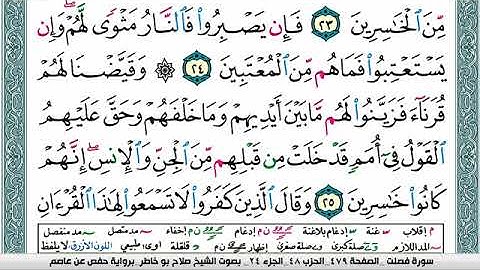 مِّنَ ٱلْخَٰسِرِينَ ٢٣ فَإِن يَصْبِرُوا۟ فَٱلنَّارُ مَثْوًى لَّهُمْ ۖ وَإِن
يَسْتَعْتِبُوا۟ فَمَا هُم مِّنَ ٱلْمُعْتَبِينَ ٢٤ ۞ وَقَيَّضْنَا لَهُمْ
قُرَنَآءَ فَزَيَّنُوا۟ لَهُم مَّا بَيْنَ أَيْدِيهِمْ وَمَا خَلْفَهُمْ وَحَقَّ عَلَيْهِمُ
ٱلْقَوْلُ فِىٓ أُمَمٍ قَدْ خَلَتْ مِن قَبْلِهِم مِّنَ ٱلْجِنِّ وَٱلْإِنسِ ۖ إِنَّهُمْ
كَانُوا۟ خَٰسِرِينَ ٢٥ وَقَالَ ٱلَّذِينَ كَفَرُوا۟ لَا تَسْمَعُوا۟ لِهَٰذَا ٱلْقُرْءَانِ
م إقلاب غنة إدغام بلاغنة إدغام إخفاء مد متصل مد منفصل
المد اللازم صلة كبرى وصلة صغرى إظهار قلقلة طبيعي اللون الأزرق لا يلفظ
سورة فصلت _الصفحة ٤٧٩_ الحزب ٤٨_ الجزء ٢٤ _ بصوت الشيخ صلاح بو خاطر _برواية حفص عن عاصم